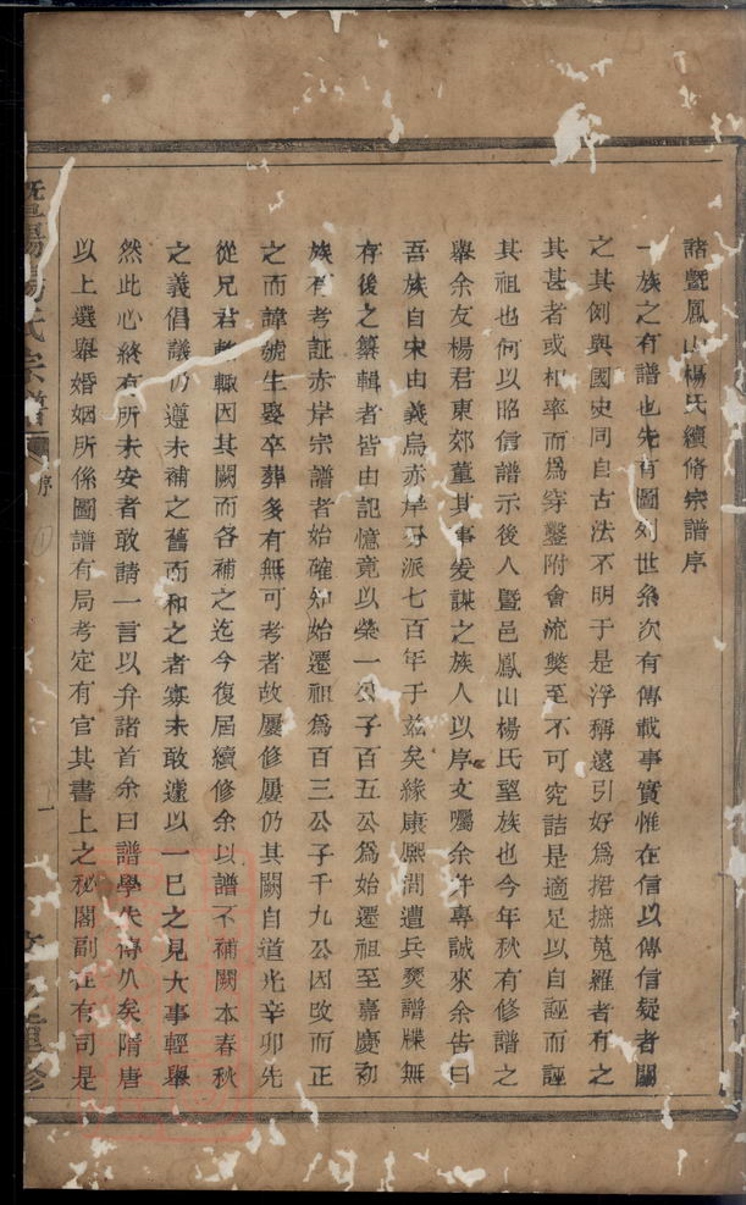 諸暨鳳山楊氏續脩宗譜序
一族之有譜也先有圖列世系次有傳載事實惟在信以傳信疑者闕
之其例與國史同自古法不明于是浮稱遠引好為捃摭蒐羅者有之
其甚者或相率而為穿鑿附會流獘至不可究詰是適足以自誣而誣
其祖也何以昭信譜示後人暨邑鳳山楊氏望族也今年秋有修譜之
舉余友楊君東郊董其事爰謀之族人以序文囑余并專誠來余告曰
吾族自宋由義烏赤岸分派七百年于茲矣緣康熙間遭兵燹譜牒無
存後之纂輯者皆由記憶竟以榮一公子百五公為始遷祖至嘉慶初
族有考証赤岸宗譜者始確知始遷祖為百三公子千九公因改而正
之而諱號生娶卒葬多有無可考者故屢修屢仍其闕自道光辛卯先
從兄君 輒因其闕而各補之迄今復屆續修余以譜不補闕本春秋
之義倡議仍遵未補之舊而和之者寡未敢遽以一已之見大事輕舉
然此心終有所未安者敢請一言以弁諸首余曰譜學失傳久矣隋唐
以上選舉婚姻所係圖譜有局考定有官其書上之秘閣副在有司是
暨陽楊氏宗譜 序 一 重修